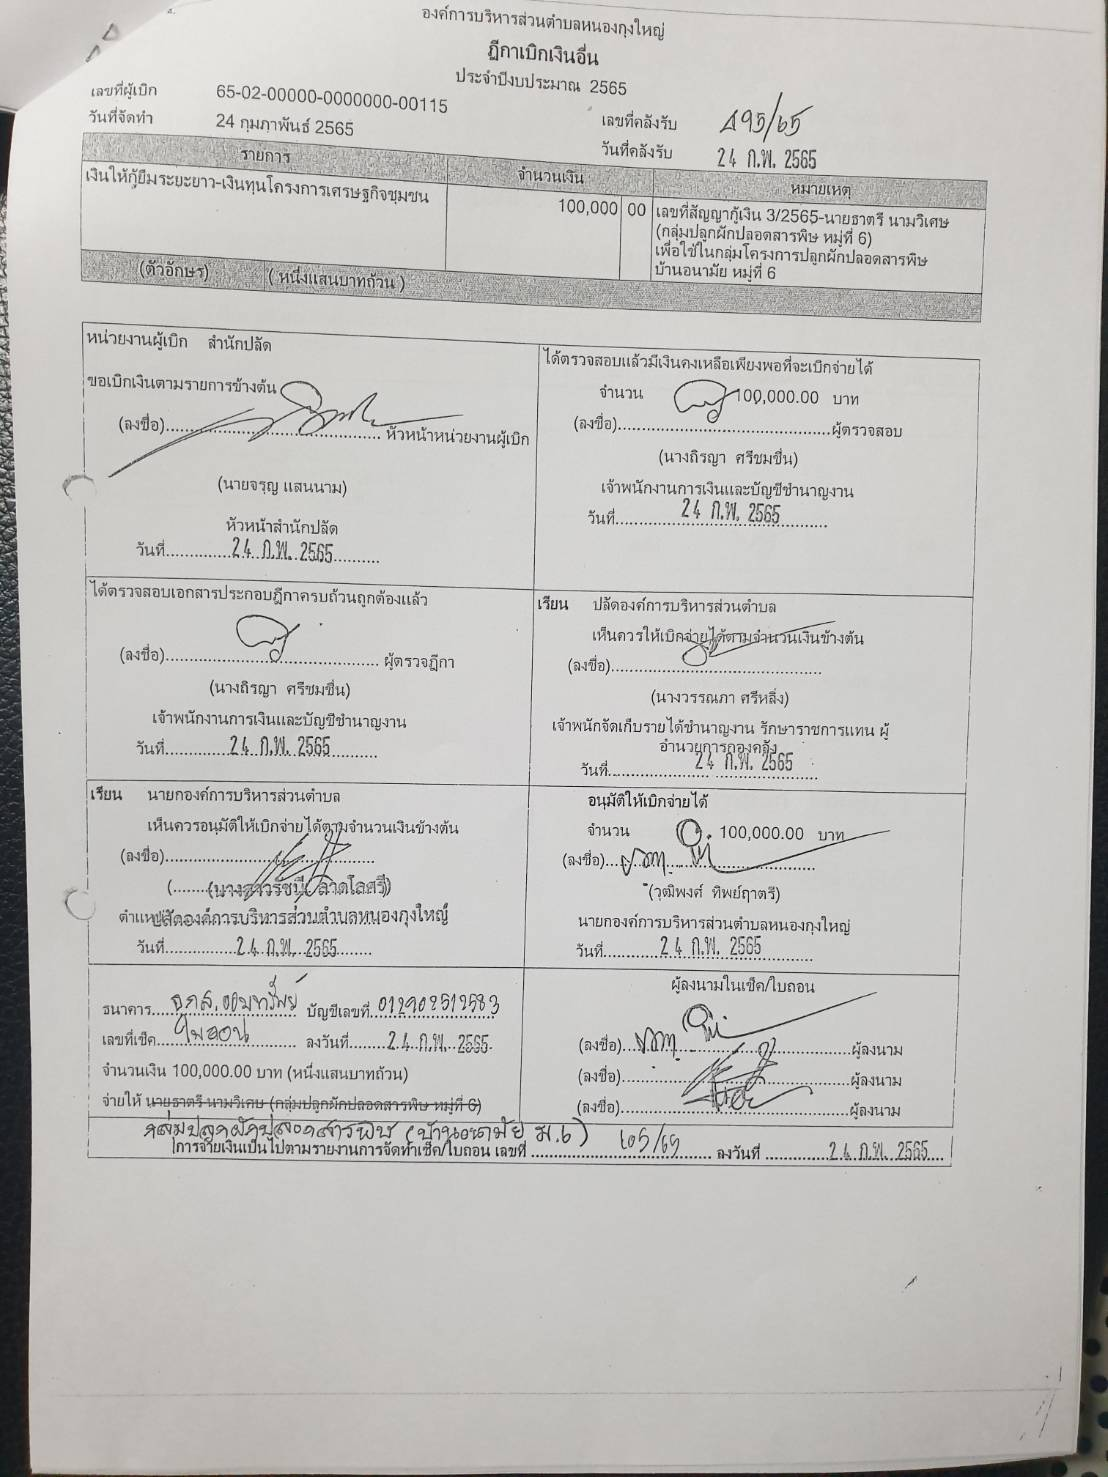 องค์การบริหารส่วนตำบลหนองกุงใหญ่
ฎีกาเบิกเงินอื่น
ประจำปีงบประมาณ 2565
เลขที่ผู้เบิก 65-02-00000-0000000-00115
เลขที่คลังรับ 495/65
วันที่จัดทำ 24 กุมภาพันธ์ 2565
วันที่คลังรับ 24 ก.พ. 2565
รายการ จำนวนเงิน หมายเหตุ
เงินให้กู้ยืมระยะยาว-เงินทุนโครงการเศรษฐกิจชุมชน 100,000 00 เลขที่สัญญากู้เงิน 3/2565-นายธาตรี นามวิเศษ
(กลุ่มปลูกผักปลอดสารพิษ หมู่ที่ 6)
เพื่อใช้ในกลุ่มโครงการปลูกผักปลอดสารพิษ
บ้านอนามัย หมู่ที่ 6
(ตัวอักษร) ( หนึ่งแสนบาทถ้วน )
หน่วยงานผู้เบิก สำนักปลัด
ขอเบิกเงินตามรายการข้างต้น
(ลงชื่อ)........ หัวหน้าหน่วยงานผู้เบิก
(นายจรุญ แสนนาม)
หัวหน้าสำนักปลัด
วันที่........24 ก.พ. 2565........
ได้ตรวจสอบแล้วมีเงินคงเหลือเพียงพอที่จะเบิกจ่ายได้
จำนวน 100,000.00 บาท
(ลงชื่อ)........ผู้ตรวจสอบ
(นางถิรญา ศรีชมชื่น)
เจ้าพนักงานการเงินและบัญชีชำนาญงาน
วันที่........24 ก.พ. 2565........
ได้ตรวจสอบเอกสารประกอบฎีกาครบถ้วนถูกต้องแล้ว
(ลงชื่อ)........ ผู้ตรวจฎีกา
(นางถิรญา ศรีชมชื่น)
เจ้าพนักงานการเงินและบัญชีชำนาญงาน
วันที่........24 ก.พ. 2565........
เรียน ปลัดองค์การบริหารส่วนตำบล
เห็นควรให้เบิกจ่ายได้ตามจำนวนเงินข้างต้น
(ลงชื่อ)........
(นางวรรณภา ศรีหลิ่ง)
เจ้าพนักจัดเก็บรายได้ชำนาญงาน รักษาราชการแทน ผู้
อำนวยการกองคลัง
วันที่........24 ก.พ. 2565........
เรียน นายกองค์การบริหารส่วนตำบล
เห็นควรอนุมัติให้เบิกจ่ายได้ตามจำนวนเงินข้างต้น
(ลงชื่อ)........
(........(นางสาวรัชนี ลาดโลศรี)
ตำแหปลัดองค์การบริหารส่วนตำบลหนองกุงใหญ่
วันที่........24 ก.พ. 2565........
อนุมัติให้เบิกจ่ายได้
จำนวน 100,000.00 บาท
(ลงชื่อ)........
(วุฒิพงศ์ ทิพย์ฤาตรี)
นายกองค์การบริหารส่วนตำบลหนองกุงใหญ่
วันที่........24 ก.พ. 2565........
ธนาคาร....ธกส.ออมทรัพย์ บัญชีเลขที่..012902512583
เลขที่เช็ค....ใบถอน........ ลงวันที่........24 ก.พ. 2565
จำนวนเงิน 100,000.00 บาท (หนึ่งแสนบาทถ้วน)
จ่ายให้ นายธาตรี นามวิเศษ (กลุ่มปลูกผักปลอดสารพิษ หมู่ที่ 6)
กลุ่มปลูกผักปลอดสารพิษ (บ้านอนามัย ม.6)
ผู้ลงนามในเช็ค/ใบถอน
(ลงชื่อ)........ผู้ลงนาม
(ลงชื่อ)........ผู้ลงนาม
(ลงชื่อ)........ผู้ลงนาม
การจ่ายเงินเป็นไปตามรายงานการจัดทำเช็ค/ใบถอน เลขที่ ........605/65........ ลงวันที่ ........24 ก.พ. 2565....